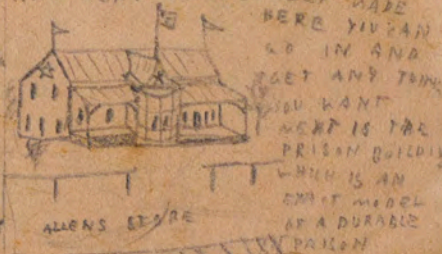 MADE
HERE YOU CAN
GO IN AND
GET ANY THING
YOU WANT
NEXT IS THE
PRISON BUILDI
WHICH IS AN
EXACT MODEL
OF A DURABLE
PRISON
ALLENS STORE